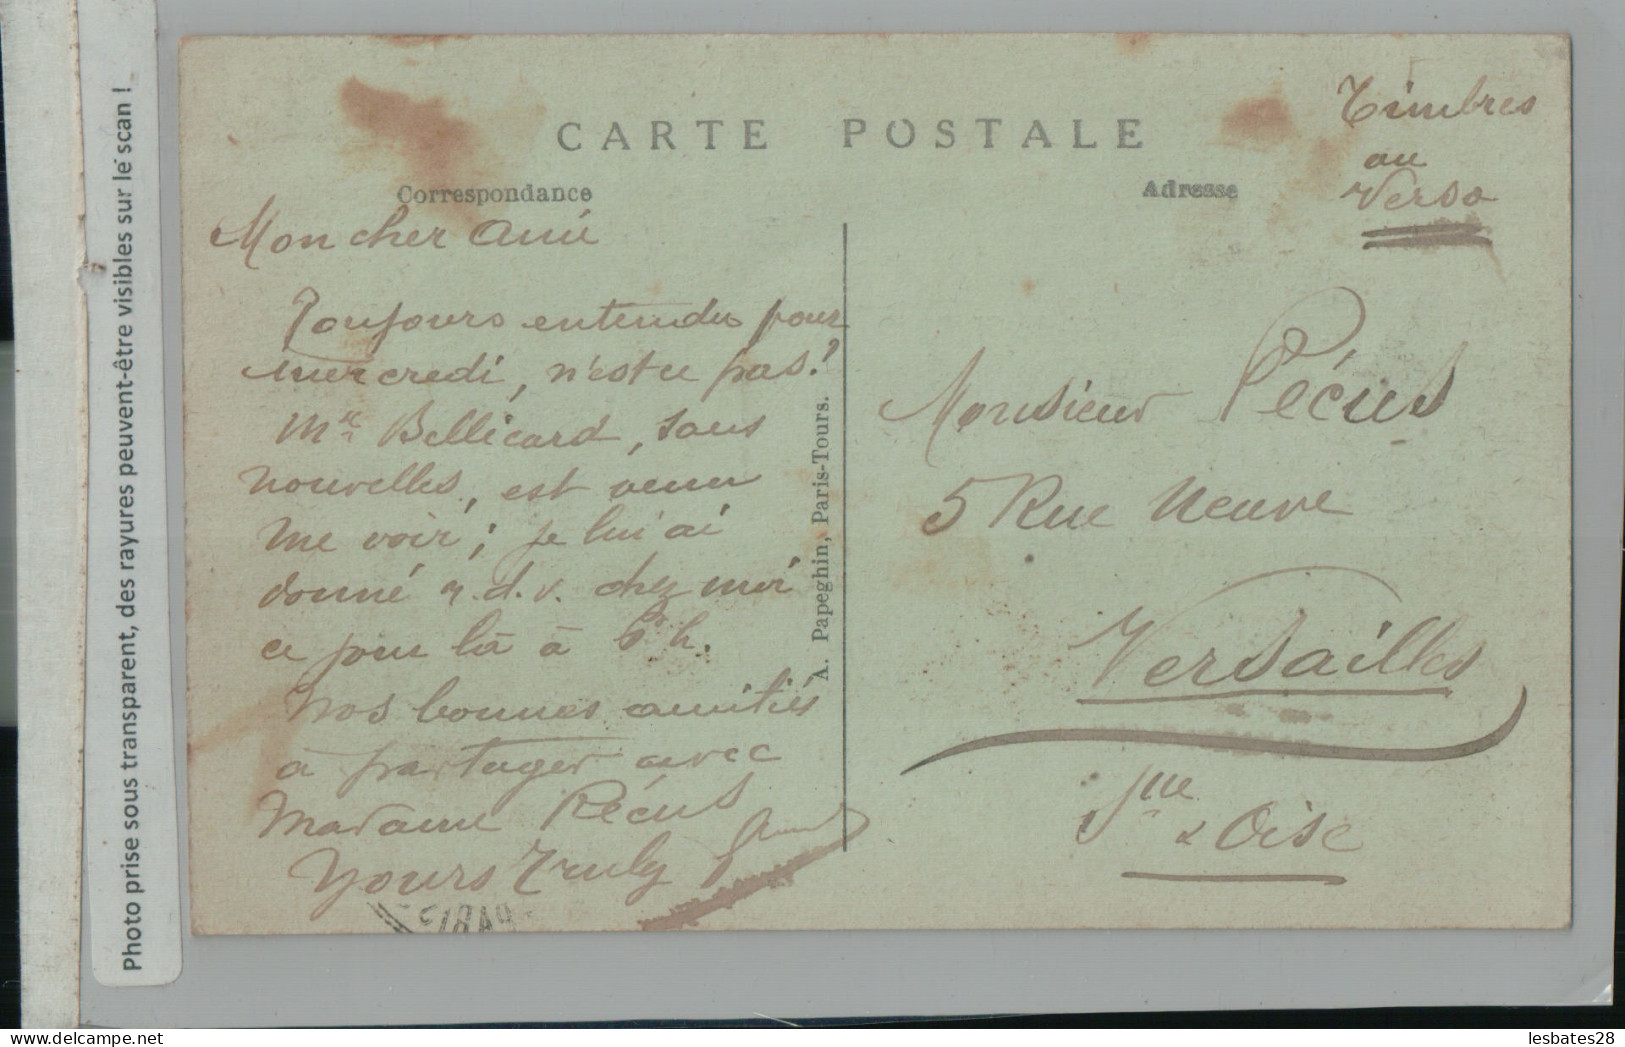 Photo prise sous transparent, des rayures peuvent-être visibles sur le scan !
CARTE POSTALE
Correspondance
Adresse
Timbres
au
Verso
Mon cher Ami
Toujours entendu pour
mercredi, n'est ce pas?
Bellicard, sans
nouvelles, est venu
me voir; je lui ai
donné r.d.v. chez moi
ce jour là à 6 h.
Nos bonnes amitiés
à partager avec
Madame Pécus
Yours Truly
A. Papeghin, Paris-Tours.
Monsieur Pécus
5 Rue Neuve
Versailles
Sne
& Oise
PARIS
lesbates28